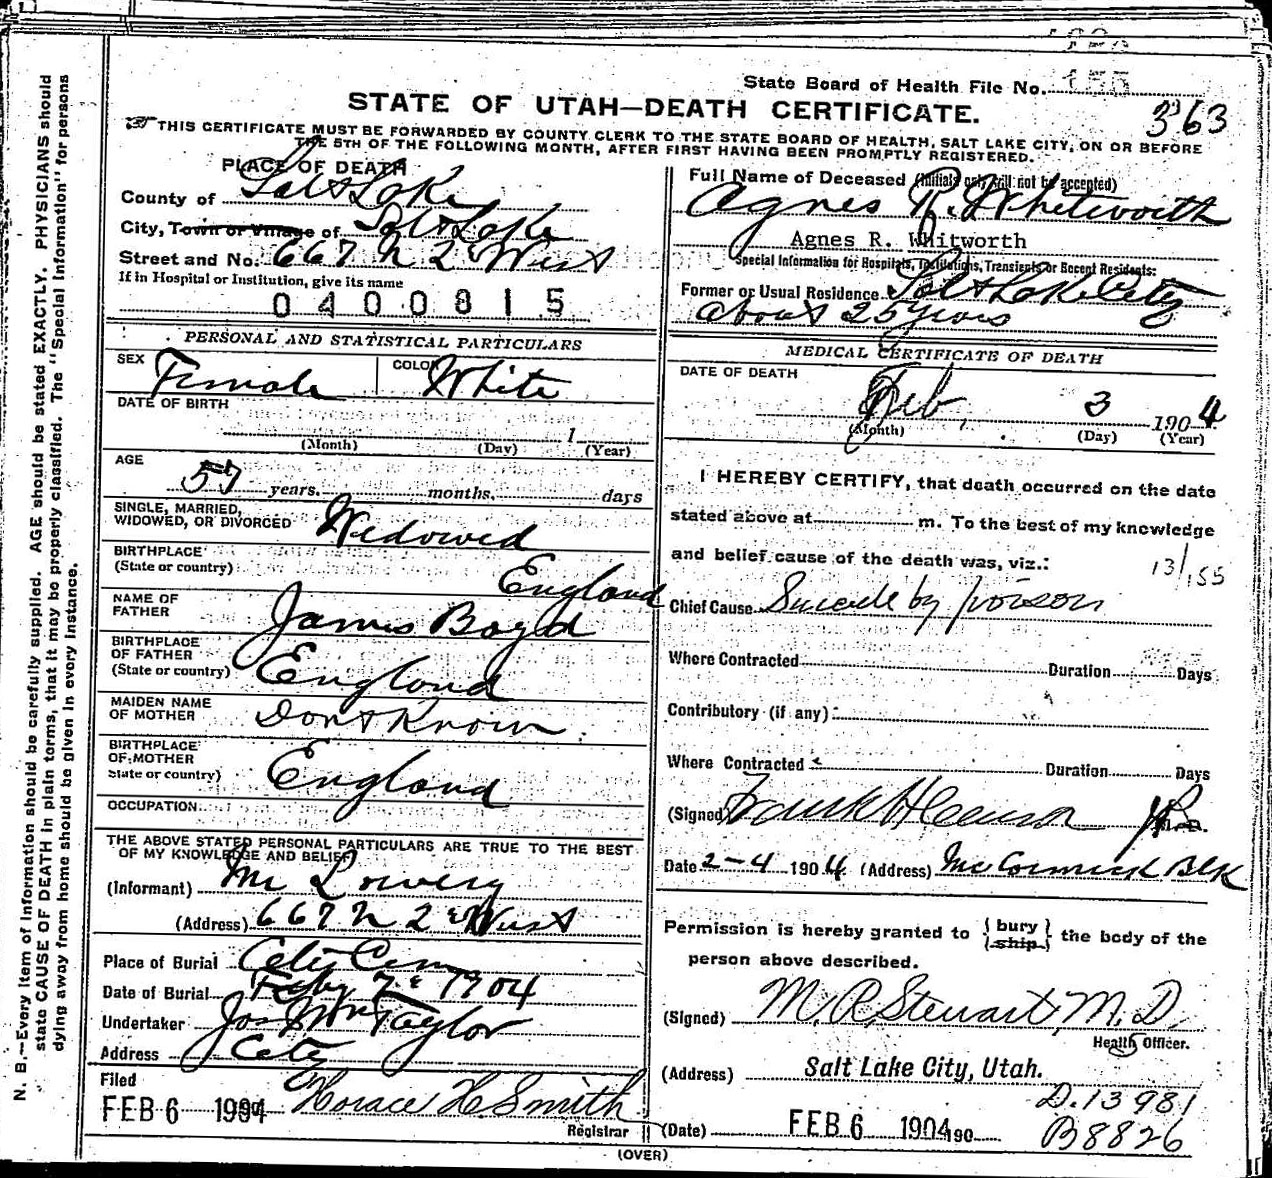 State Board of Health File No. 155
363
STATE OF UTAH—DEATH CERTIFICATE.
THIS CERTIFICATE MUST BE FORWARDED BY COUNTY CLERK TO THE STATE BOARD OF HEALTH, SALT LAKE CITY, ON OR BEFORE
THE 5TH OF THE FOLLOWING MONTH, AFTER FIRST HAVING BEEN PROMPTLY REGISTERED.
PLACE OF DEATH
County of Salt Lake
City, Town or Village of Salt Lake
Street and No. 667 N 2d West
If in Hospital or Institution, give its name
0400815
Full Name of Deceased (Initials only will not be accepted)
Agnes R. Whitworth
Agnes R. Whitworth
Special Information for Hospitals, Institutions, Transients or Recent Residents:
Former or Usual Residence Salt Lake City
about 25 years
PERSONAL AND STATISTICAL PARTICULARS
SEX Female COLOR White
DATE OF BIRTH
1
(Month) (Day) (Year)
AGE
57 years. months, days
SINGLE, MARRIED,
WIDOWED, OR DIVORCED Widowed
BIRTHPLACE
(State or country) England
NAME OF
FATHER James Boyd
BIRTHPLACE
OF FATHER
(State or country) England
MAIDEN NAME
OF MOTHER Dont Know
BIRTHPLACE
OF MOTHER
State or country) England
OCCUPATION
THE ABOVE STATED PERSONAL PARTICULARS ARE TRUE TO THE BEST
OF MY KNOWLEDGE AND BELIEF
(Informant) Mr Lowery
(Address) 667 N 2d West
Place of Burial City Cem
Date of Burial Feby 7th 1904
Undertaker Jos Wm Taylor
Address City
Filed
FEB 6 1904 Horace H Smith
Registrar
MEDICAL CERTIFICATE OF DEATH
DATE OF DEATH
Feb 3 1904
(Month) (Day) (Year)
I HEREBY CERTIFY, that death occurred on the date
stated above at m. To the best of my knowledge
and belief cause of the death was, viz.:
13/155
Chief Cause Suicide by poison
Where Contracted Duration Days
Contributory (if any)
Where Contracted Duration Days
(Signed)
Date 2-4 1904 (Address) McCormick Blk
Permission is hereby granted to {bury ship} the body of the
person above described.
(Signed) M. R. Stewart, M. D.
Health Officer.
(Address) Salt Lake City, Utah.
D.13981
(Date) FEB 6 1904 190
B8826
(OVER)
N. B.—Every item of information should be carefully supplied. AGE should be stated EXACTLY. PHYSICIANS should
state CAUSE OF DEATH in plain terms, that it may be properly classified. The "Special Information" for persons
dying away from home should be given in every instance.